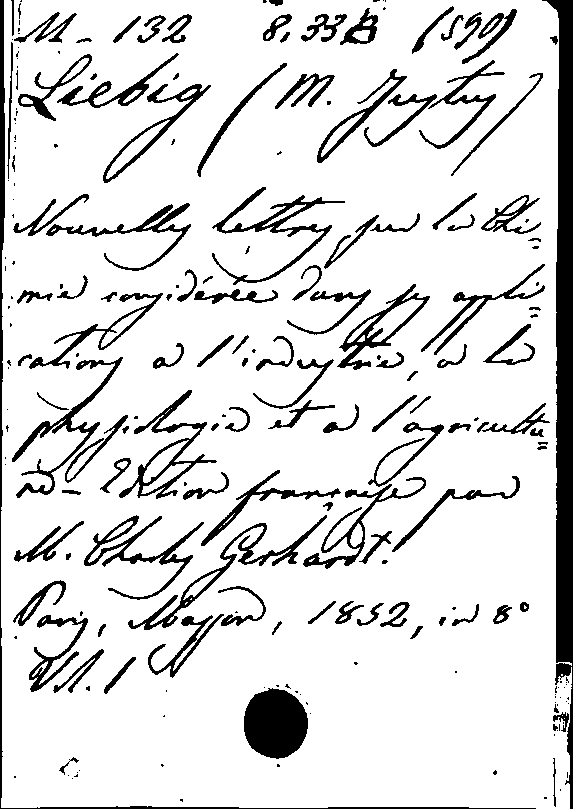 M - 132 8.33B (590)
Liebig (M. Justus)
Nouvelles lettres sur la Chi=
mie considérée dans ses appli=
cations a l'industrie, a la
physiologie et a l'agricultu=
re - Edition française par
M. Charles Gerhardt.
Paris, Masson, 1852, in 8°
Vl. 1